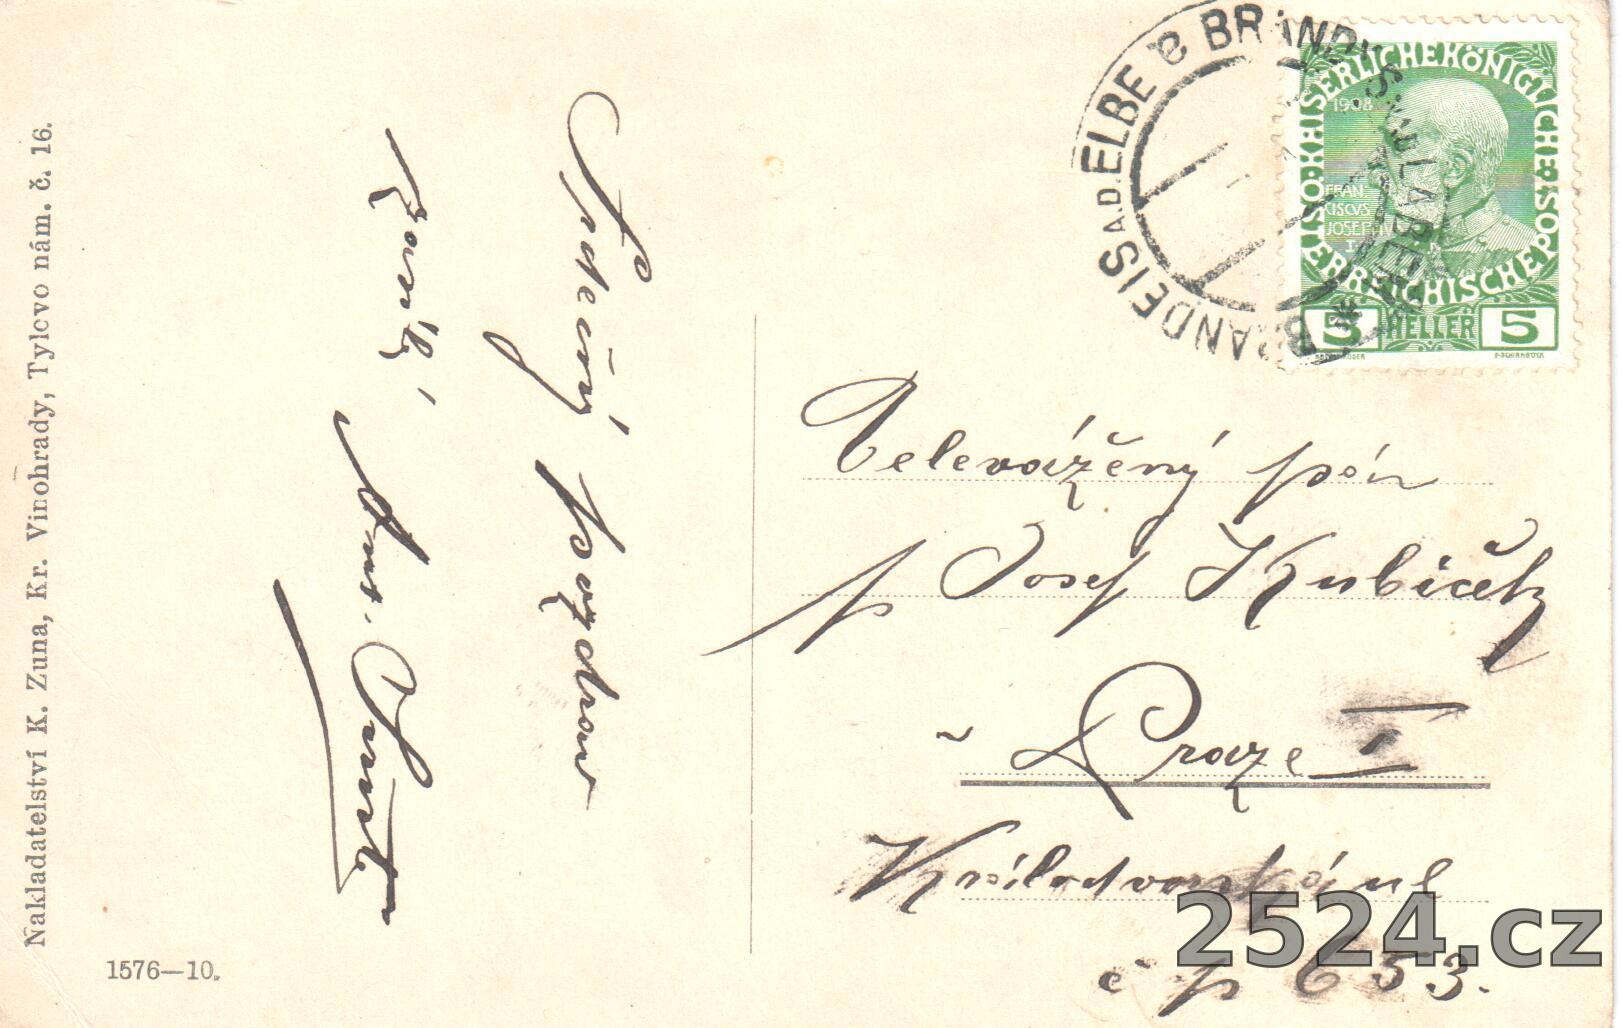 Nakladatelství K. Zuna, Kr. Vinohrady, Tylovo nám. č. 16.
1576—10.
Srdečný pozdrav
BRANDEIS A.D. ELBE BRANDÝS N. LABEM
KAISERLICHE KÖNIGLICHE ÖSTERREICHISCHE POST
1908
FRAN
CISCUS
JOSEPH
I
5 HELLER 5
Velevážený pán
p Josef Kubíček
v Praze I
Králodvorská ul
č p 653.
2524.cz